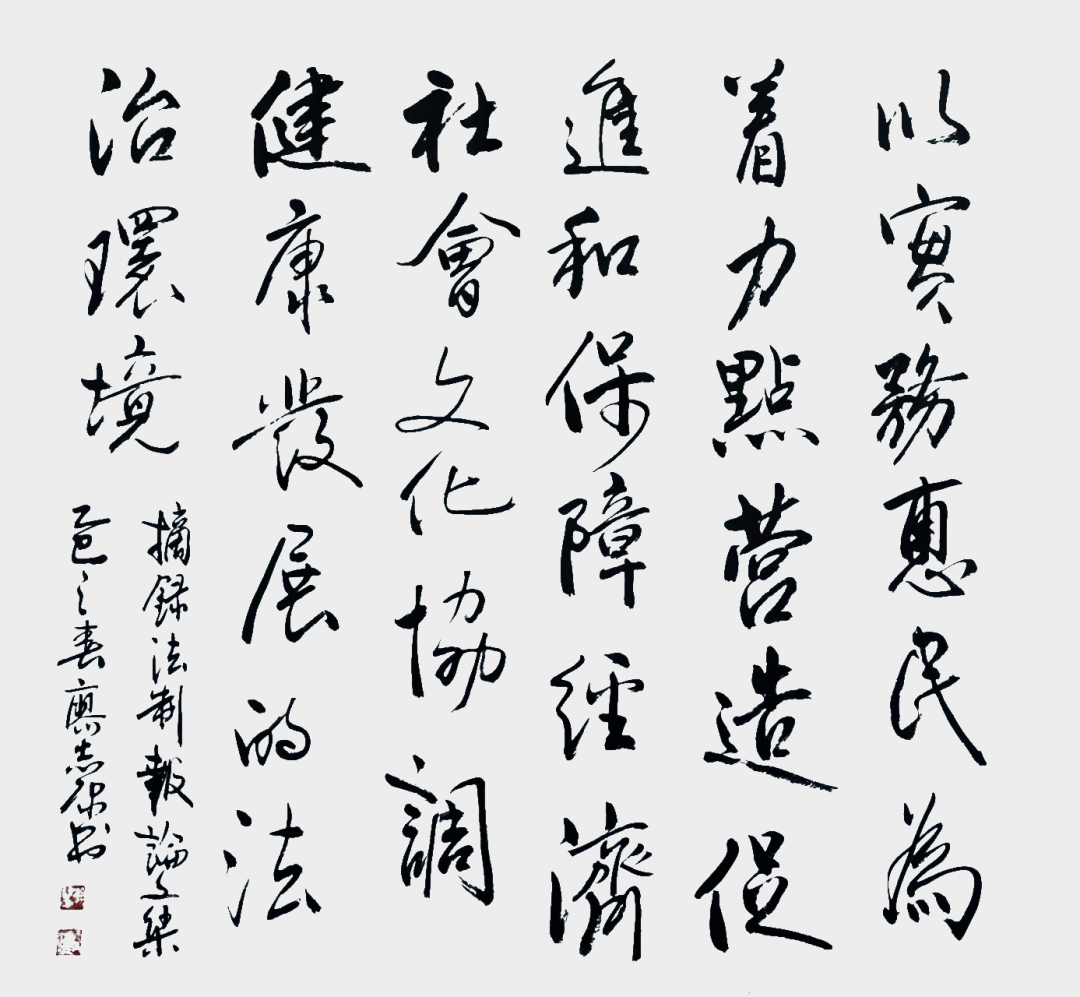 以實務惠民為
着力點营造促
進和保障經濟
社會文化協調
健康發展的法
治環境
摘録法制報論文集
乙巳之春 志 书